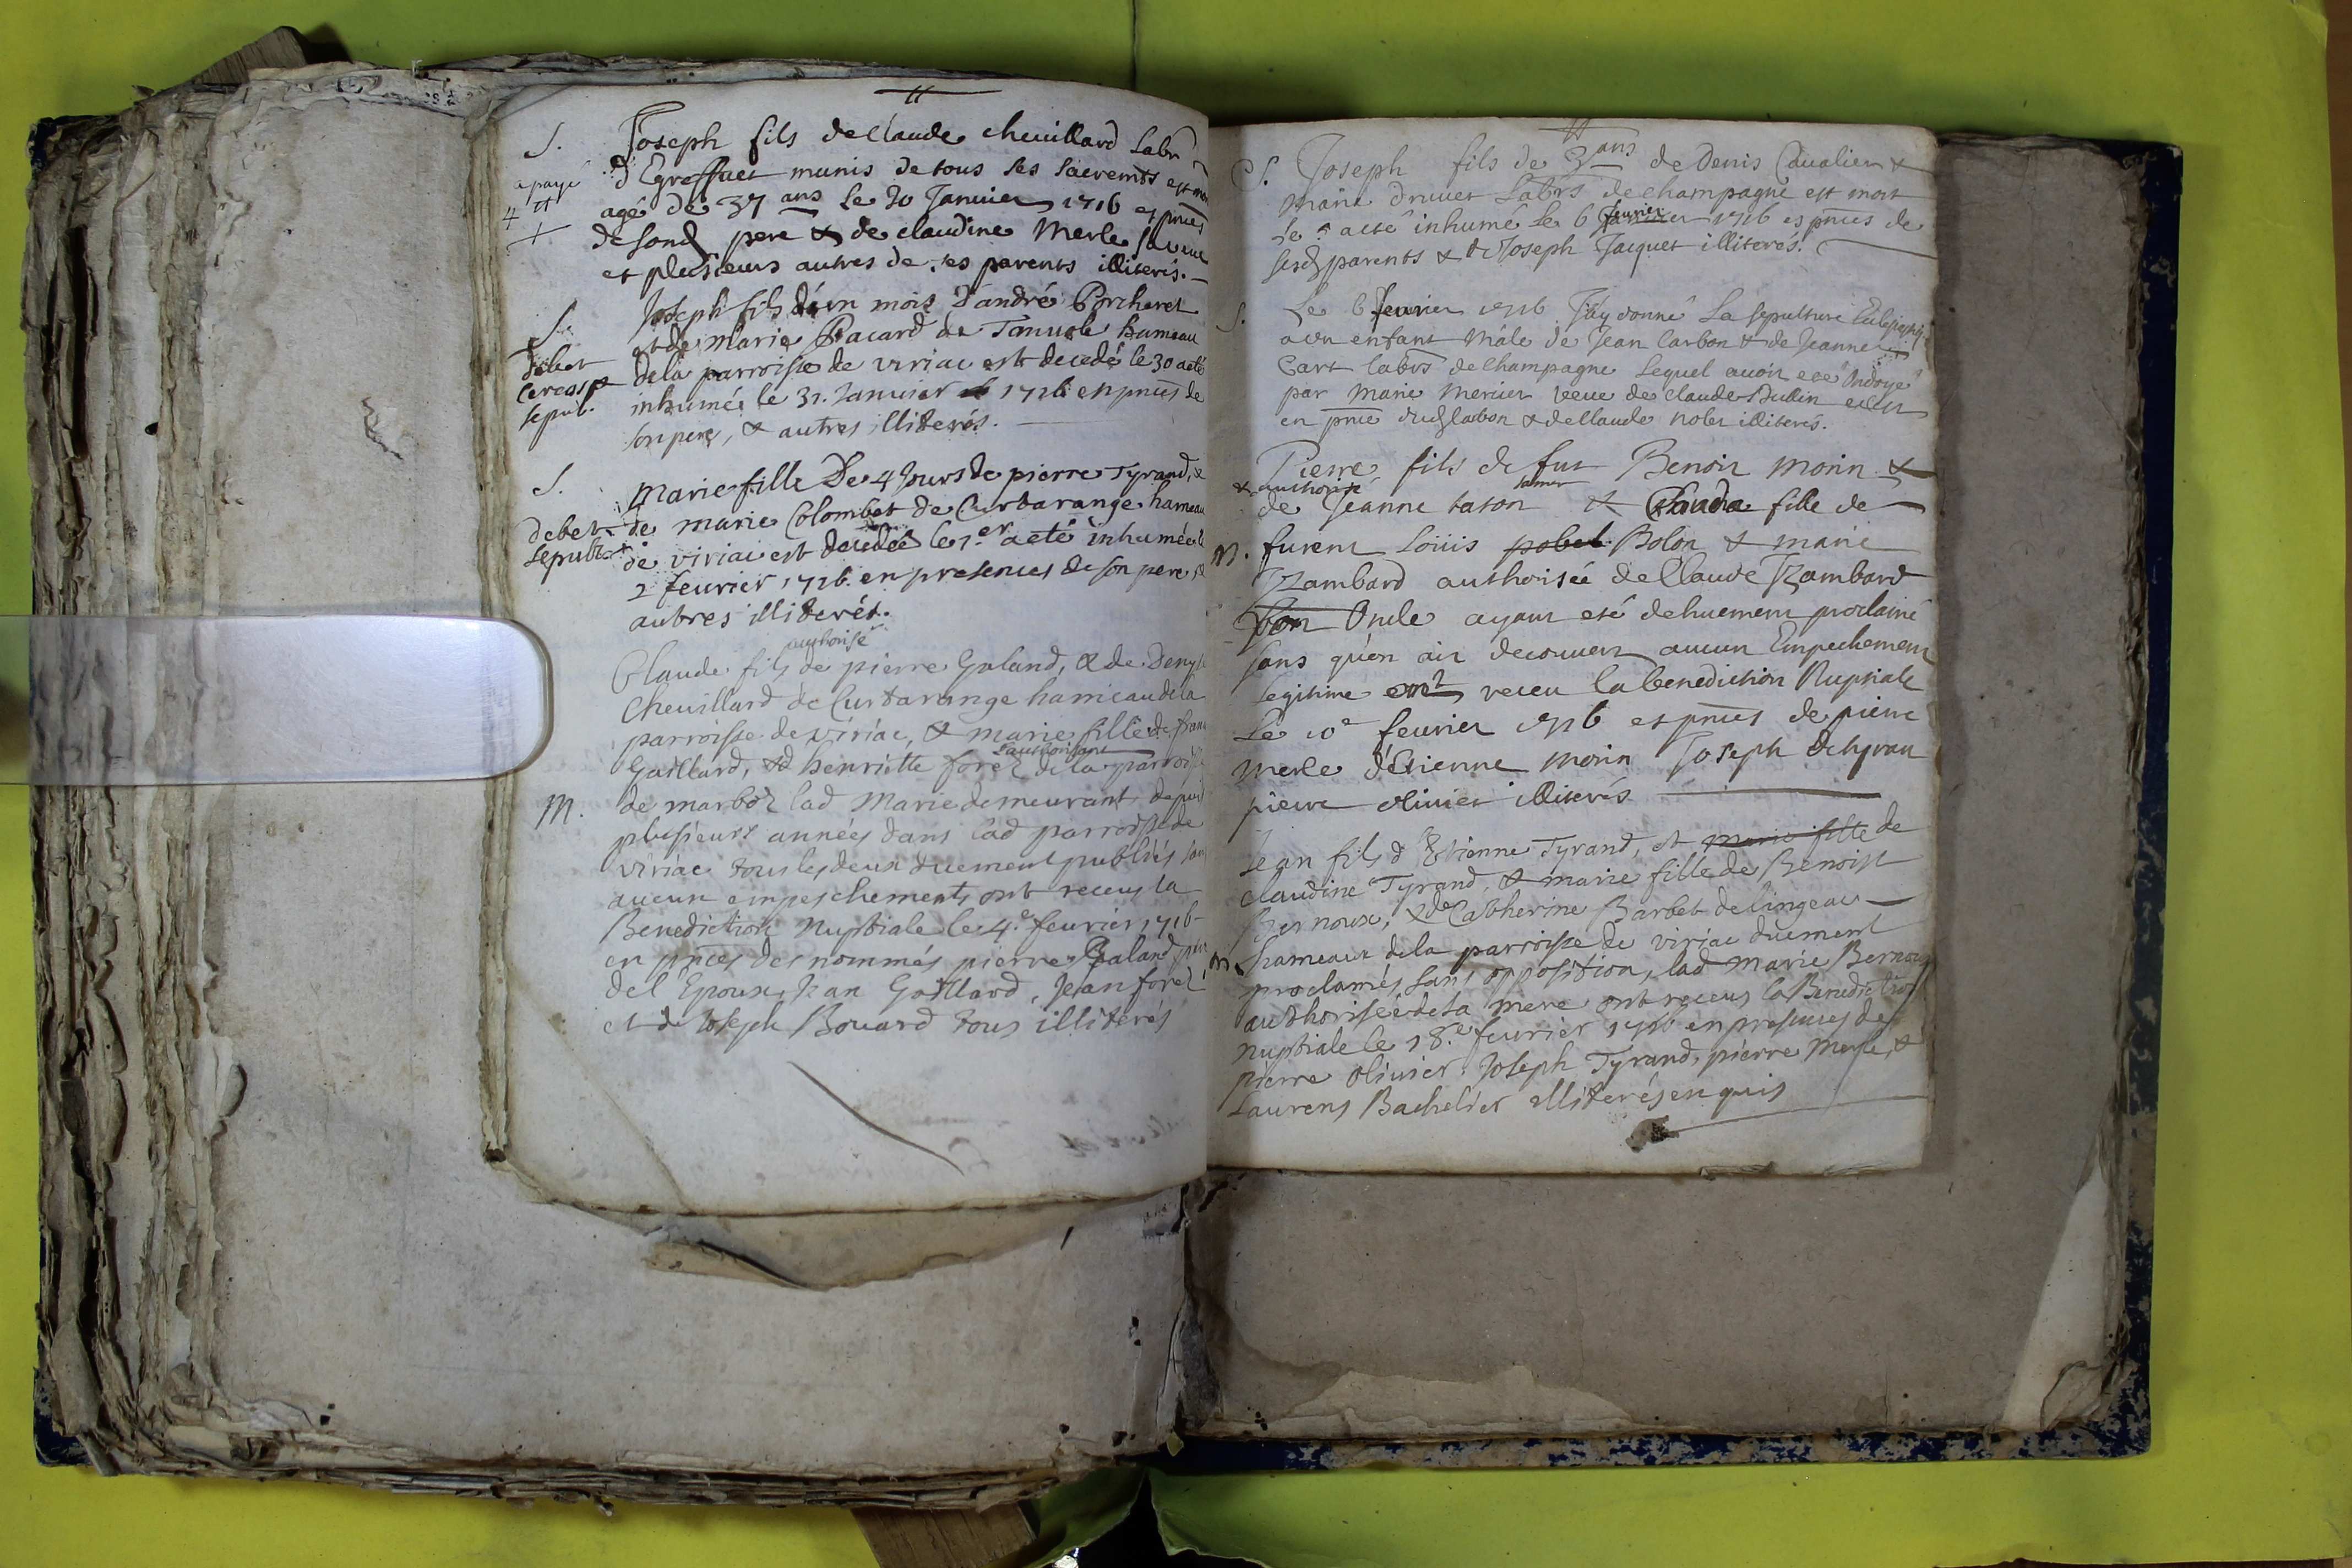 S. Joseph fils de Claude cheuillard Labr
a payé d'Egreffaet munis de tous ses sacremts est mort
4 tt agé de 37 ans le 30 Januier 1716 es pnces
de sond pere & de claudine Merle sa veuue
et plusieurs autres de ses parents illiterés.
S. Joseph fils d'un mois d'andré Porcheret
et de marie Pacard de Tanuole hameau
debet dela parroisse de viriac est decedé le 30 aeté
sepul. inhumée le 31. Januier 1716 en pnces de
son pere, & autres illiterés.
S. Marie fille De 4 Jours de pierre Tyrand, &
debet de marie Colombet de Curtarange hameau
sepult. de viriac est decedée le 1.er aeté inhumée le
2 feurier 1716. en presences de son pere, &
autres illiterés.
authorisé
Claude fils de pierre Galand, & de Denyse
Cheuillard de Curtarange hameau dela
parroisse de viriac, & marie fille de
Gaillard, & d henriette forez dela parroisse
M. de marboz lad Marie demeurant depuis
plusieurs années dans lad parroisse de
viriac tous les deux duement publiés sans
aucun empeschement, ont receus la
Benediction Nuptiale le 4.e feurier 1716
en pnces des nommés pierre Galand pere
del Epoux, Jean Gaillard, Jean forez
et de Joseph Bouard tous illiterés
S. Joseph fils de 3 ans de Denis Caualier &
marie druuet Labrs de champagne est mort
le 5 aeté inhumé le 6 feurier 1716 es pnces de
sesd parents & de Joseph Jacquet illiterés.
S. Le 6 feurier 1716 J'ay donné La sepulture
a un enfant mâle de Jean Carbon & de Jeanne
Cart labrs de champagne Lequel auoit eté Ondoyé
par marie mercier veue de claude Dullin
en pnce dud Carbon & de Claude nolir illiterés.
Pierre fils de fut Benoit morin &
& authorisé sa mere
de Jeanne taton & Claudia fille de
M. furent Loüis pobel Bolon & marie
Rambard authorisée de Claude Rambard
son Oncle ayant eté dehuement proclamé
sans qu'en ait decouuert aucun Empechement
legitime ont receu la benediction Nuptiale
Le 10e feurier 1716 es pnces de pierre
merle d'Etienne morin Joseph
pierre oliuier illiterés
Jean fils d Etienne Tyrand, et marie fille de
claudine Tyrand, & marie fille de Benoist
Bernoux, & de Catherine Barbet de lingeac
M. hameaux dela parroisse de viriac duement
proclamés sans opposition, lad Marie Bernoux
authorisée de sa mere ont receus la Benediction
nuptiale le 18.e feurier 1716 en presences de
pierre Oliuier, Joseph Tyrand, pierre Merle, &
Laurens Bachelier illiterés enquis